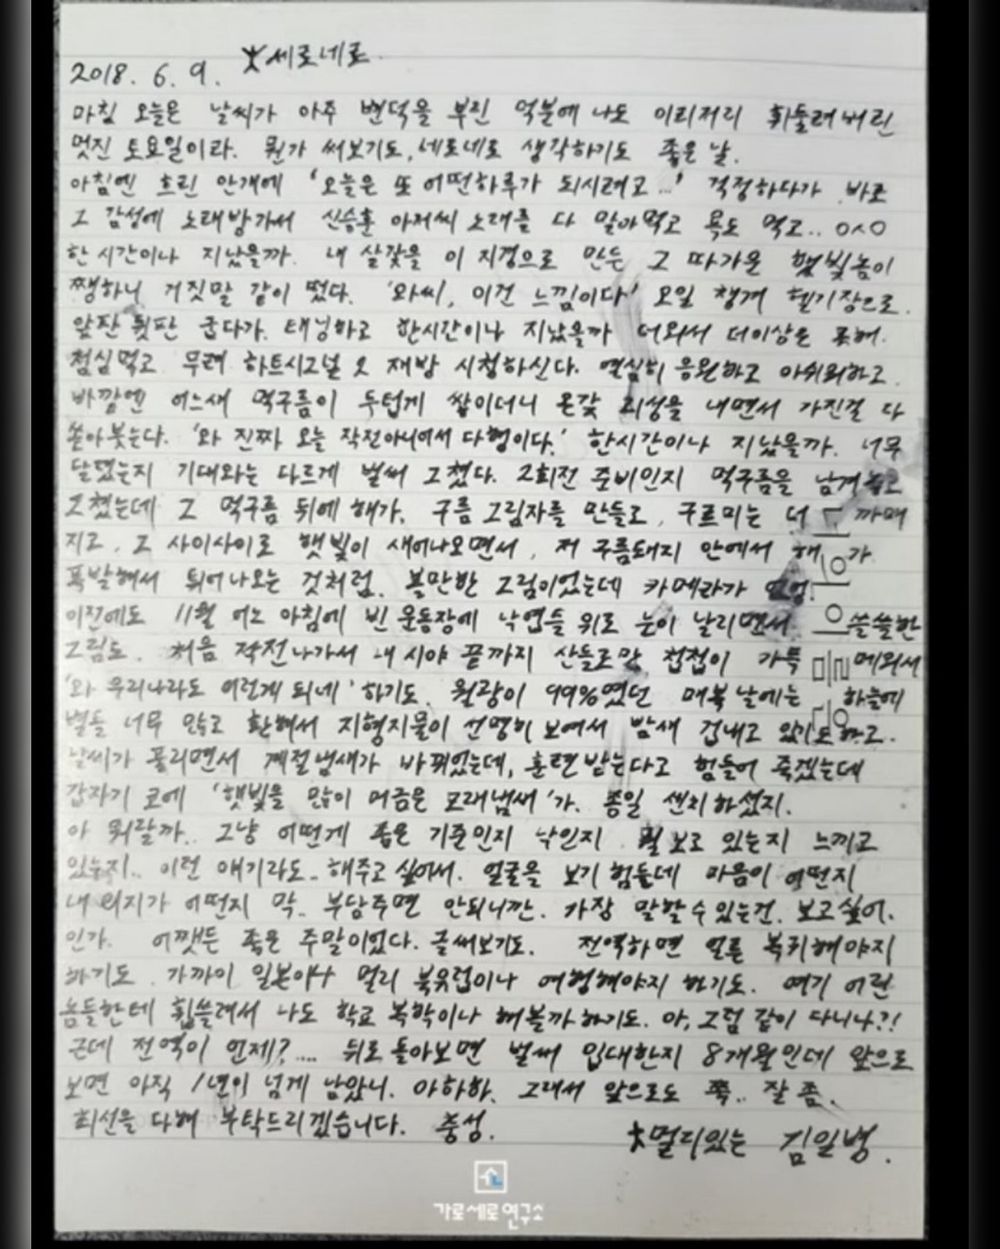 세로네로.
2018. 6. 9.
마침 오늘은 날씨가 아주 변덕을 부린 덕분에 나도 이리저리 휘둘려버린
멋진 토요일이라. 뭔가 써보기도, 세로네로 생각하기도 좋은 날.
아침엔 흐린 안개에 '오늘은 또 어떤하루가 되시려고...' 걱정하다가 바로
그 감성에 노래방가서 신승훈 아저씨 노래를 다 말아먹고 욕도 먹고.. ㅇㅅㅇ
한시간이나 지났을까. 내 살갗을 이 지경으로 만든 그 따가운 햇빛놈이
쨍하니 거짓말 같이 떴다. '와씨, 이건 느낌이다' 오일 챙겨 헬기장으로.
앞판 뒷판 굽다가. 태닝하고 한시간이나 지났을까 더워서 더이상은 못해.
점심먹고 무려 하트시그널 2 재방 시청하신다. 열심히 응원하고 아쉬워하고.
바깥엔 어느새 먹구름이 두텁게 쌓이더니 온갖 괴성을 내면서 가진걸 다
쏟아붓는다. '와 진짜 오늘 작전아니어서 다행이다.' 한시간이나 지났을까. 너무
달랬는지 기대와는 다르게 벌써 그쳤다. 2회전 준비인지 먹구름을 남겨놓고
그쳤는데 그 먹구름 뒤에 해가. 구름 그림자를 만들고, 구르미는 더 까매
지고. 그 사이사이로 햇빛이 새어나오면서, 저 구름돼지 안에서 해가
폭발해서 튀어나오는 것처럼. 볼만한 그림이었는데 카메라가
이전에도 11월 어느 아침에 빈 운동장에 낙엽들 위로 눈이 날리면서 쓸쓸한
그림도. 처음 작전나가서 내 시야 끝까지 산들로만 첩첩이 가득 메워져
'와 우리나라도 이렇게 되네' 하기도. 월광이 99%였던 매복 날에는 하늘에
별들 너무 많고 환해서 지형지물이 선명히 보여서 밤새 겁내고 있기도하고.
날씨가 풀리면서 계절냄새가 바뀌었는데, 훈련받는다고 힘들어 죽겠는데
갑자기 코에 '햇빛을 많이 머금은 모래냄새'가. 종일 센치하셨지.
아 뭐랄까.. 그냥 어떤게 좋은 기준인지 낙인지 뭘 보고 있는지 느끼고
있는지.. 이런 얘기라도.. 해주고 싶어서. 얼굴을 보기 힘들데 마음이 어떤지
내 의지가 어떤지 막. 부담주면 안되니깐. 가장 말할수있는건. 보고싶어.
인가. 어쨋든 좋은 주말이었다. 글써보기도. 전역하면 얼른 복귀해야지
하기도. 가까이 일본이나 멀리 북유럽이나 여행해야지 하기도. 여기 어린
놈들한테 휩쓸려서 나도 학교 복학이나 해볼까하기도. 아, 그럼 같이 다니나?!
근데 전역이 언제?.... 뒤로 돌아보면 벌써 입대한지 8개월인데 앞으로
보면 아직 1년이 넘게 남았니. 아하하. 그래서 앞으로도 쭉.. 잘 좀.
최선을 다해 부탁드리겠습니다. 충성.
멀리있는 김일병.
가로세로연구소